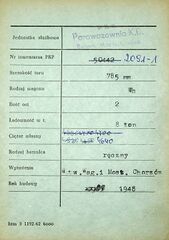 Jednostka służbowa
Parowozownia K.D.
Nr inwentarza PKP 50442 2081-1
Szerokość toru 785 mm
Rodzaj wagonu Wh
Ilość osi 2
Ładowność w t. 8 ton
Ciężar własny 4640
Rodzaj hamulca ręczny
Wytwórnia W-t.Wag.i Most. Chorzów
Rok budowy 1948